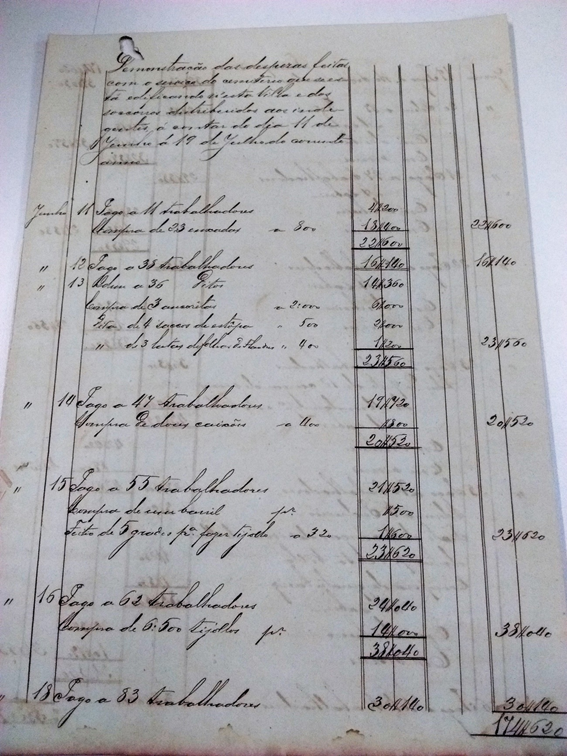 Demonstração das despezas feitas
com o serviço do cemiterio que se es-
tá edificando n'esta Villa e dos
soccorros distribuidos aos indi-
gentes, a contar do dia 11 de
Junho á 19 de Julho do corrente
anno
Junho 11 Pago a 11 trabalhadores 4$200
Compra de 23 enxadas a 800 18$400 22$600
22$600
" 12 Pago a 38 trabalhadores 16$140 16$140
" 13 Idem a 36 Ditos 14$360
Compra de 3 a 2:000 6$000
Dita de 4 saccos de estopa " 500 2$000
" de 3 de folha de Flandres " 400 1$200 23$560
23$560
" 14 Pago a 47 trabalhadores 19$720
Compra de dous caixões a 400 $800 20$520
20$520
" 15 Pago a 55 trabalhadores 21$520
Compra de um barril pr. $500
Feitio de 5 grades pa. fazer tijollo a 320 1$600 23$620
23$620
" 16 Pago a 62 trabalhadores 24$040
Compra de 6:500 tijollos pr. 14$000 38$040
38$040
" 18 Pago a 83 trabalhadores 30$140 30$140
174$620